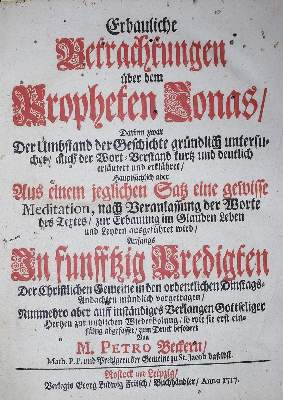 Erbauliche
Betrachtungen
über dem
Propheten Jonas/
Darinn zwar
Der Umbstand der Geschichte gründlich untersu-
chet/ auch der Wort-Verstand kurtz und deutlich
erläutert und erkläret/
Hauptsächlich aber
Aus einem jeglichen Satz eine gewisse
Meditation, nach Veranlassung der Worte
des Textes/ zur Erbauung im Glauben Leben
und Leyden ausgeführet wird/
Anfangs
In funfftzig Predigten
Der Christlichen Gemeine in den ordentlichen Dinstags-
Andachten mündlich vorgetragen/
Nunmehro aber auff inständiges Verlangen Gottseliger
Hertzen zur nützlichen Wiederholung/ so wie sie erst ein-
fältig abgefasset/ zum Druck befodert
Von
M. PETRO Beckern/
Math. P. P. und Predigern der Gemeine zu St. Jacob daselbst.
Rostock und Leipzig/
Verlegts Georg Ludwig Fritsch/ Buchhändler/ Anno 1717.